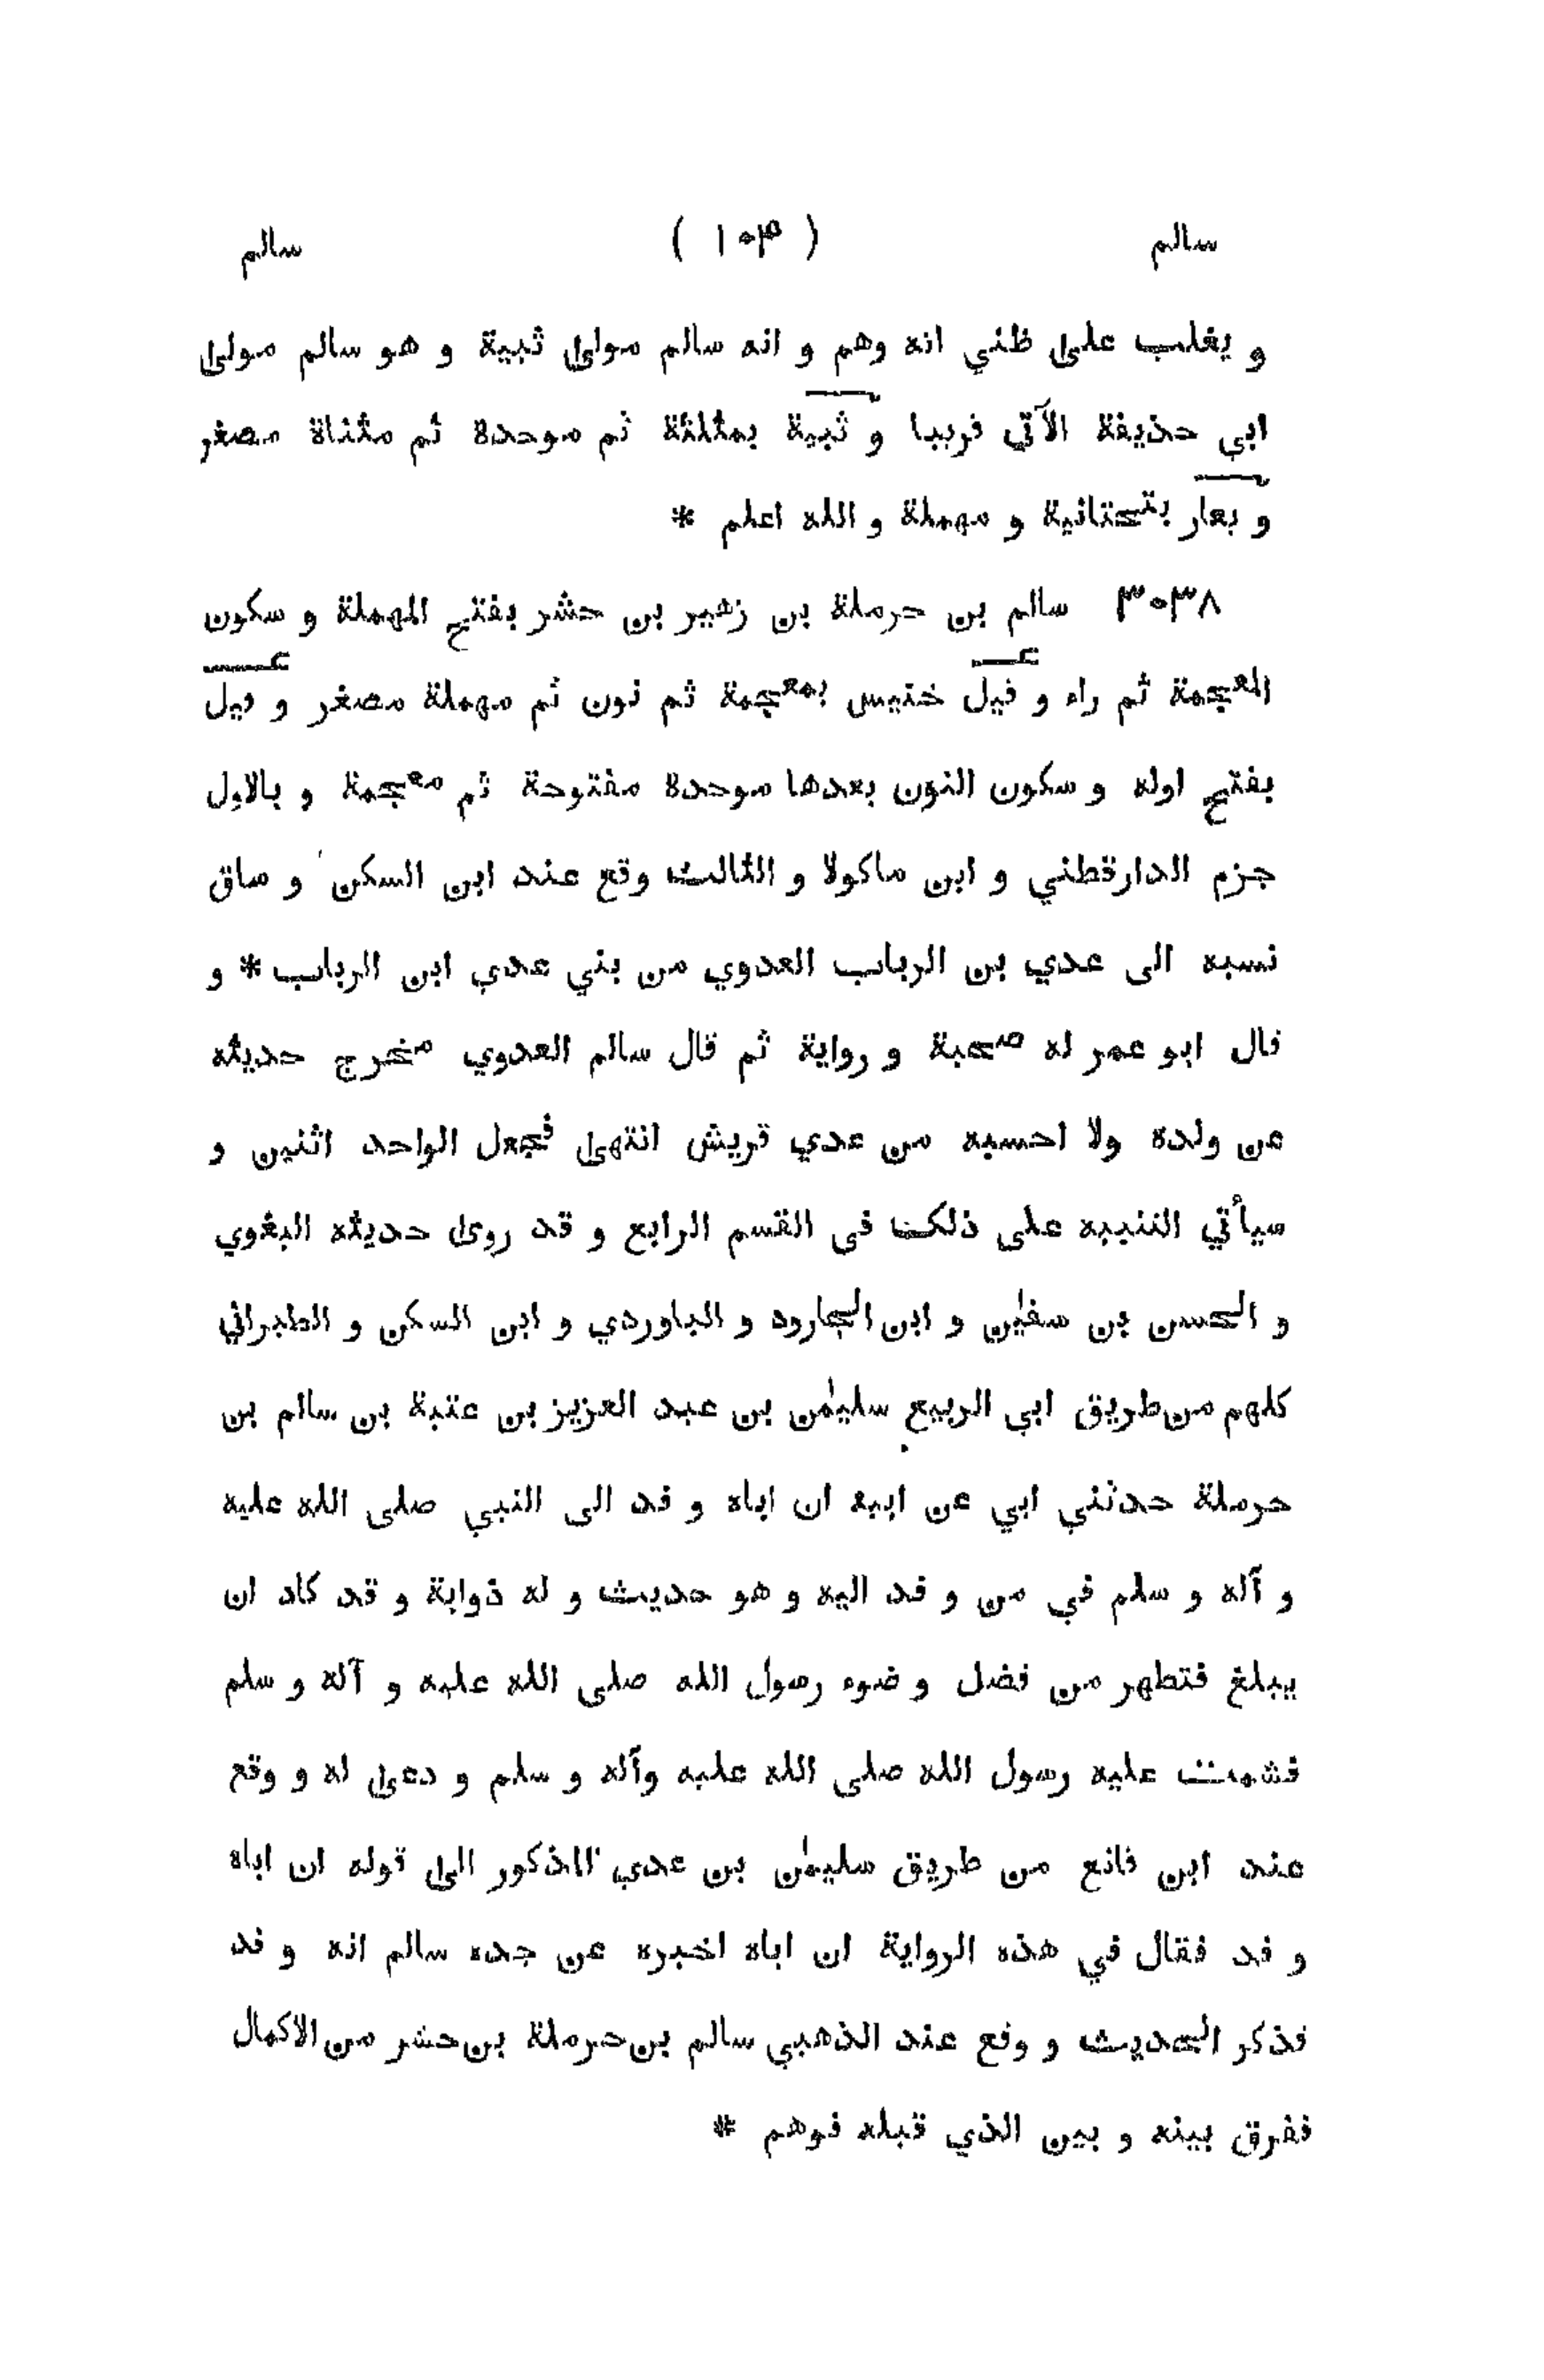 سالم ( ١٠٣ ) سالم
و يغلب على ظني انه وهم و انه سالم مولى ثبية و هو سالم مولى
ابي حذيفة الآتي قريبا و ثبية بمثلثة ثم موحدة ثم مثناة مصغر
و بعار بتحتانية و مهملة و الله اعلم *
٣٠٣٨ سالم بن حرملة بن زهير بن حشر بفتح المهملة و سكون
المعجمة ثم راء و قيل خنيس بمعجمة ثم نون ثم مهملة مصغر و قيل
بفتح اوله و سكون النون بعدها موحدة مفتوحة ثم معجمة و بالاول
جزم الدارقطني و ابن ماكولا و الثالث وقع عند ابن السكن و ساق
نسبه الى عدي بن الرباب العدوي من بني عدي ابن الرباب * و
قال ابو عمر له صحبة و رواية ثم قال سالم العدوي مخرج حديثه
عن ولده ولا احسبه من عدي قريش انتهى فجعل الواحد اثنين و
سيأتي التنبيه على ذلك فى القسم الرابع و قد روى حديثه البغوي
و الحسن بن سفيٰن و ابن الجارود و الباوردي و ابن السكن و الطبراني
كلهم من طريق ابي الربيع سليمٰن بن عبد العزيز بن عتبة بن سالم بن
حرملة حدثني ابي عن ابيه ان اباه و فد الى النبي صلى الله عليه
و آله و سلم في من و فد اليه و هو حديث و له ذوابة و قد كاد ان
يبلغ فتطهر من فضل و ضوء رسول الله صلى الله عليه و آله و سلم
فشمت عليه رسول الله صلى الله عليه وآله و سلم و دعى له و وقع
عند ابن قانع من طريق سليمٰن بن عدي المذكور الى قوله ان اباه
و فد فقال في هذه الرواية ان اباه اخبره عن جده سالم انه و فد
فذكر الحديث و وقع عند الذهبي سالم بن حرملة بن حشر من الاكمال
ففرق بينه و بين الذي قبله فوهم *